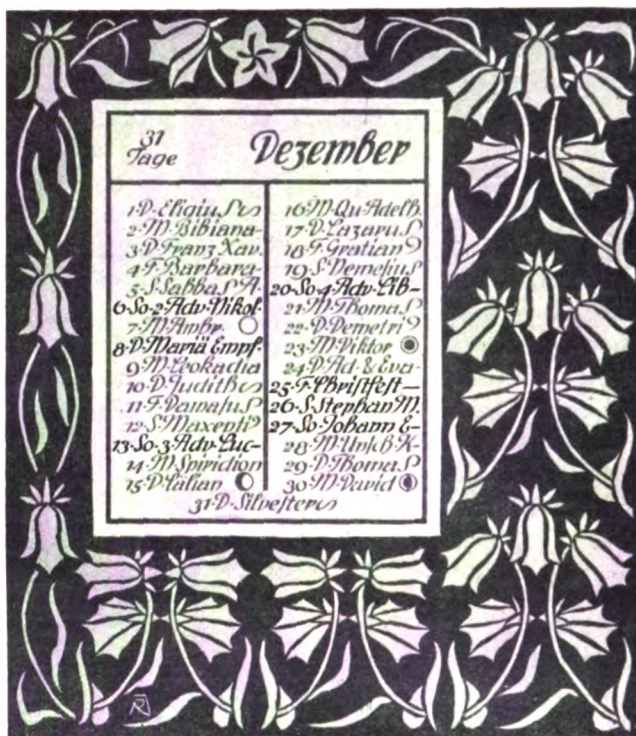 31
Tage
Dezember
1·D·Eligius
2·M·Bibiana-
3·D·Franz Xav.
4·F·Barbara-
5·S·Sabbas A·
6·So·2·Adv·Nikol·
7·M·Ambr.
8·D·Mariä Empf·
9·M·Leokadia
10·D·Judith
11·F·Damasus
12·S·Maxenti
13·So·3·Adv·Luc-
14·M·Spiridion
15·D·Cälian
16·M·Qu·Adelh.
17·D·Lazarus
18·F·Gratian
19·S·Nemesius
20·So·4·Adv·Lib-
21·M·Thomas
22·D·Demetri
23·M·Viktor
24·D·Ad·&Eva-
25·F·Christfest—
26·S·Stephan M.
27·So·Johann E-
28·M·Unsch·K-
29·D·Thomas
30·M·David
31·D·Silvester